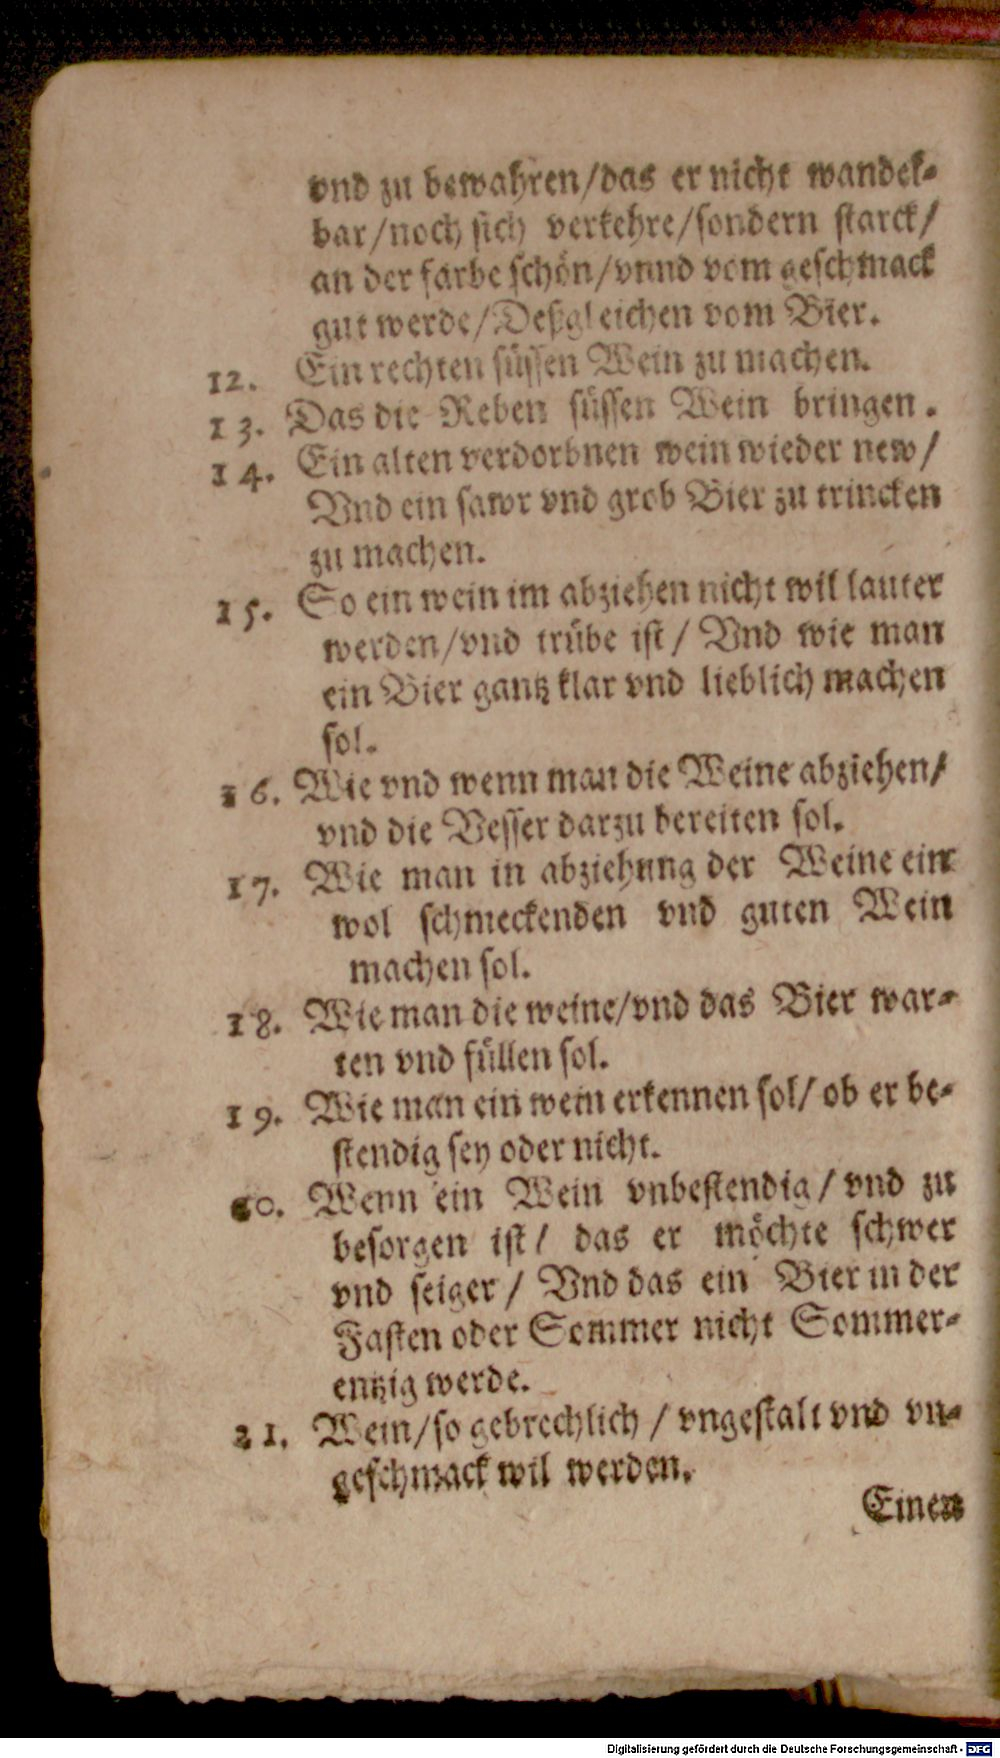 vnd zu bewahren/das er nicht wandel-
bar/noch sich verkehre/sondern starck/
an der farbe schön/vnnd vom geschmack
gut werde/Deßgleichen vom Bier.
12. Ein rechten süssen Wein zu machen.
13. Das die Reben süssen Wein bringen.
14. Ein alten verdorbnen wein wieder new/
Vnd ein sawr vnd grob Bier zu trincken
zu machen.
15. So ein wein im abziehen nicht wil lauter
werden/vnd trübe ist/ Vnd wie man
ein Bier gantz klar vnd lieblich machen
sol.
16. Wie vnd wenn man die Weine abziehen/
vnd die Vesser darzu bereiten sol.
17. Wie man in abziehung der Weine ein
wol schmeckenden vnd guten Wein
machen sol.
18. Wie man die weine/vnd das Bier war-
ten vnd füllen sol.
19. Wie man ein wein erkennen sol/ ob er be-
stendig sey oder nicht.
20. Wenn ein Wein vnbestendig/ vnd zu
besorgen ist/ das er möchte schwer
vnd seiger/ Vnd das ein Bier in der
Fasten oder Sommer nicht Sommer-
entzig werde.
21. Wein/so gebrechlich/ vngestalt vnd vn-
geschmack wil werden.
Einen
Digitalisierung gefördert durch die Deutsche Forschungsgemeinschaft - DFG